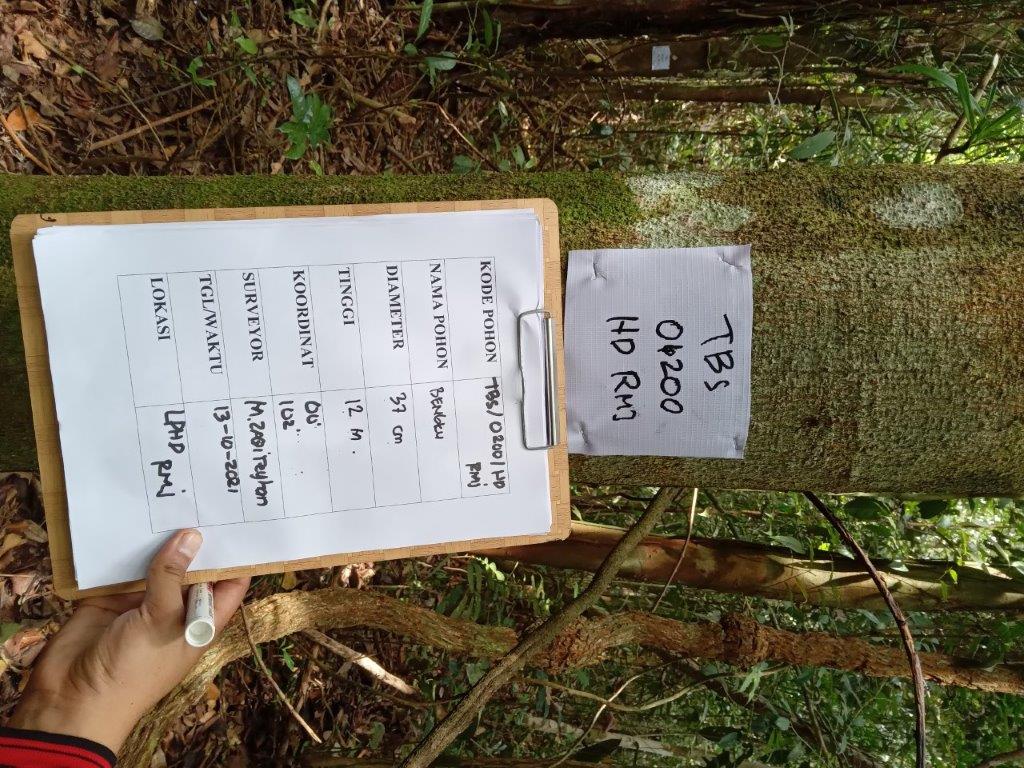 TBS
04200
HD RMJ
KODE POHON TBS/0200/HD
RMj
NAMA POHON BENGKU
DIAMETER 37 cm
TINGGI 12 M.
KOORDINAT 00°
102°
SURVEYOR
TGL/WAKTU 13-10-2021
LOKASI LPHD
RMj